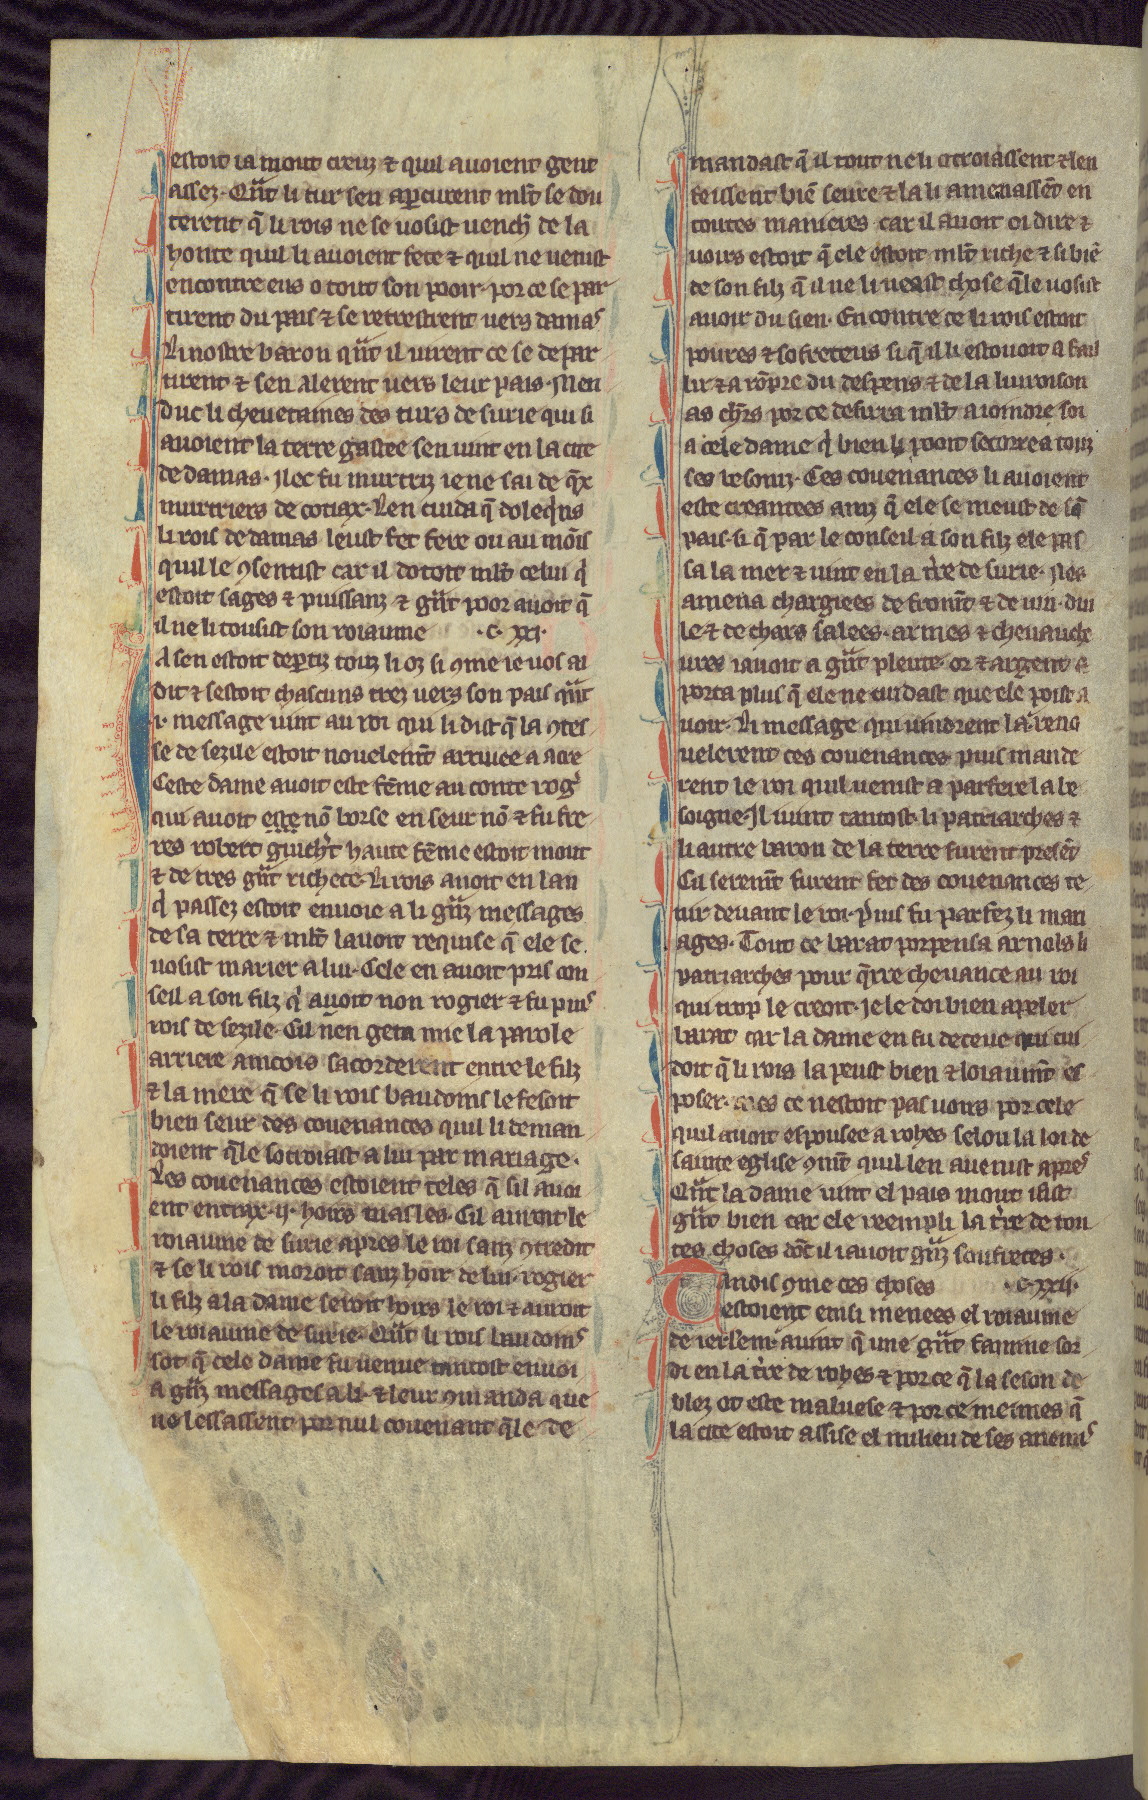 estoit ia mout creuz ⁊ quil auoient gent
assez. Qūt li tur sen aꝑcurent ml̄t se dou
terent q̄ li rois ne se uosist uench̄ de la
honte quil li auoient fete ⁊ quil ne uenist
encontre eus o tout son pooir. por ce se par
tirent du pais ⁊ se retrestrent uers damas
Li nostre baron qūt il uirent ce se depar
tirent ⁊ sen alerent uers leur pais. Men
duc li cheuetaines des turs de surie qui si
auoient la terre gastee sen uint en la cite
de damas. Ilec fu murtriz ie ne sai de q̄x
murtriers de cotiax. Len cuida q̄ dolequins
li rois de damas leust fet fere ou au moīs
quil le ꝯsentist car il dotoit ml̄t celui q̇
estoit sages ⁊ puissanz ⁊ gūt poor auoit q̄
il ne li tousist son roiaume .c. xxi.
A sen estoit deꝑtiz touz li oz si ꝯme ie uos ai
dit ⁊ sestoit chascuns trez uers son pais qūt
.i. message uint au roi qui li dist q̄ la ꝯtes
se de sezile estoit nouelemt̄ arriuee a acre
Ceste dame auoit este fēme au conte rogͬ
qui auoit este nō borse en seur nō ⁊ fu fre
res robert guich't haute fēme estoit mout
⁊ de tres gūt richece. Li rois auoit en lan
q̇ passez estoit enuoie a li gūz messages
de sa terre ⁊ ml̄t lauoit requise q̄ ele se
uosist marier a lui. Cele en auoit pris con
seil a son filz q̇ auoit non rogier ⁊ fu puis
rois de sezile. Cil nen geta mie la parole
arriere aincois sacorderent entre le filz
⁊ la mere q̄ se li rois baudoins le fesoit
bien seur des couenances quil li deman
doient q̄le sotroiast a lui par mariage.
Les couenances estoient teles q̄ sil auoi
ent entrax .ii. hoirs masles. Cil auront le
roiaume de surie apres le roi sanz ꝯtredit
⁊ se li rois moroit sanz hoir de lui. rogier
li filz a la dame seroit hoirs le roi ⁊ auroit
le roiaume de surie. Qūt li rois baudoins
sot q̄ cele dame fu uenue tantost enuoi
a gūz messages a li. ⁊ leur ꝯmanda que
ne lessassent por nul couenant q̄le de
mandast q̄ il tout ne li otroiassent ⁊ len
feissent biē seure ⁊ la li amenassēt en
toutes manieres car il auoit oi dire ⁊
uoirs estoit q̄ ele estoit ml̄t riche ⁊ si biē
de son filz q̄ il ne li ueast chose q̄le uosist
auoir du sien. Encontre ce li rois estoit
poures ⁊ sofreteus si q̄ il li estouoit a fail
lir ⁊ a rōpre du despens ⁊ de la liuroison
as chr̄s por ce desirra ml̄t a ioindre soi
a cele dame q̇ bien li pooit secorre a touz
ses besoniz. Ces couenances li auoient
este creantees anz q̄ ele se meust de sō
pais. si q̄ par le conseil a son filz ele pas
sa la mer ⁊ uint en la t̄re de surie. Nes
amena chargiees de fromt̄ ⁊ de uin. dui
le ⁊ de chars salees. armes ⁊ cheuauche
ures iauoit a gūt plente. or ⁊ argent a
porta plus q̄ ele ne cuidast que ele poist a
uoir. Li message qui uindrent la reno
uelerent ces couenances puis mande
rent le roi quil uenist a parfere la be
soigne. Il uint tantost. li patriarches ⁊
li autre baron de la terre furent presēt
Cil seremt̄ furent fet des couenances te
nir deuant le roi. Puis fu parfez li mari
ages. Tout ce barat porpensa arnols li
patriarches pour q̄rre cheuance au roi
qui trop le creoit. Je le doi bien apeler
barat car la dame en fu deceue qui cui
doit q̄ li rois la peust bien ⁊ loiaumt̄ es
poser. mes ce nestoit pas uoirs por cele
quil auoit espousee a rohes selon la loi de
sainte eglise ꝯmt̄ quil len auenist apres
Qūt la dame uint el pais mout i fist
gūt bien car ele reempli la t̄re de tou
tes choses dōt il iauoit gūz soufretes.
Tandis ꝯme ces choses .c. xxii.
estoient ensi menees el roiaume
de ierlem̄ auint q̄ une gūt famine sor
di en la t̄re de rohes ⁊ por ce q̄ la seson de
blez ot este maluese ⁊ por ce meimes q̄
la cite estoit assise el milieu de ses anemis